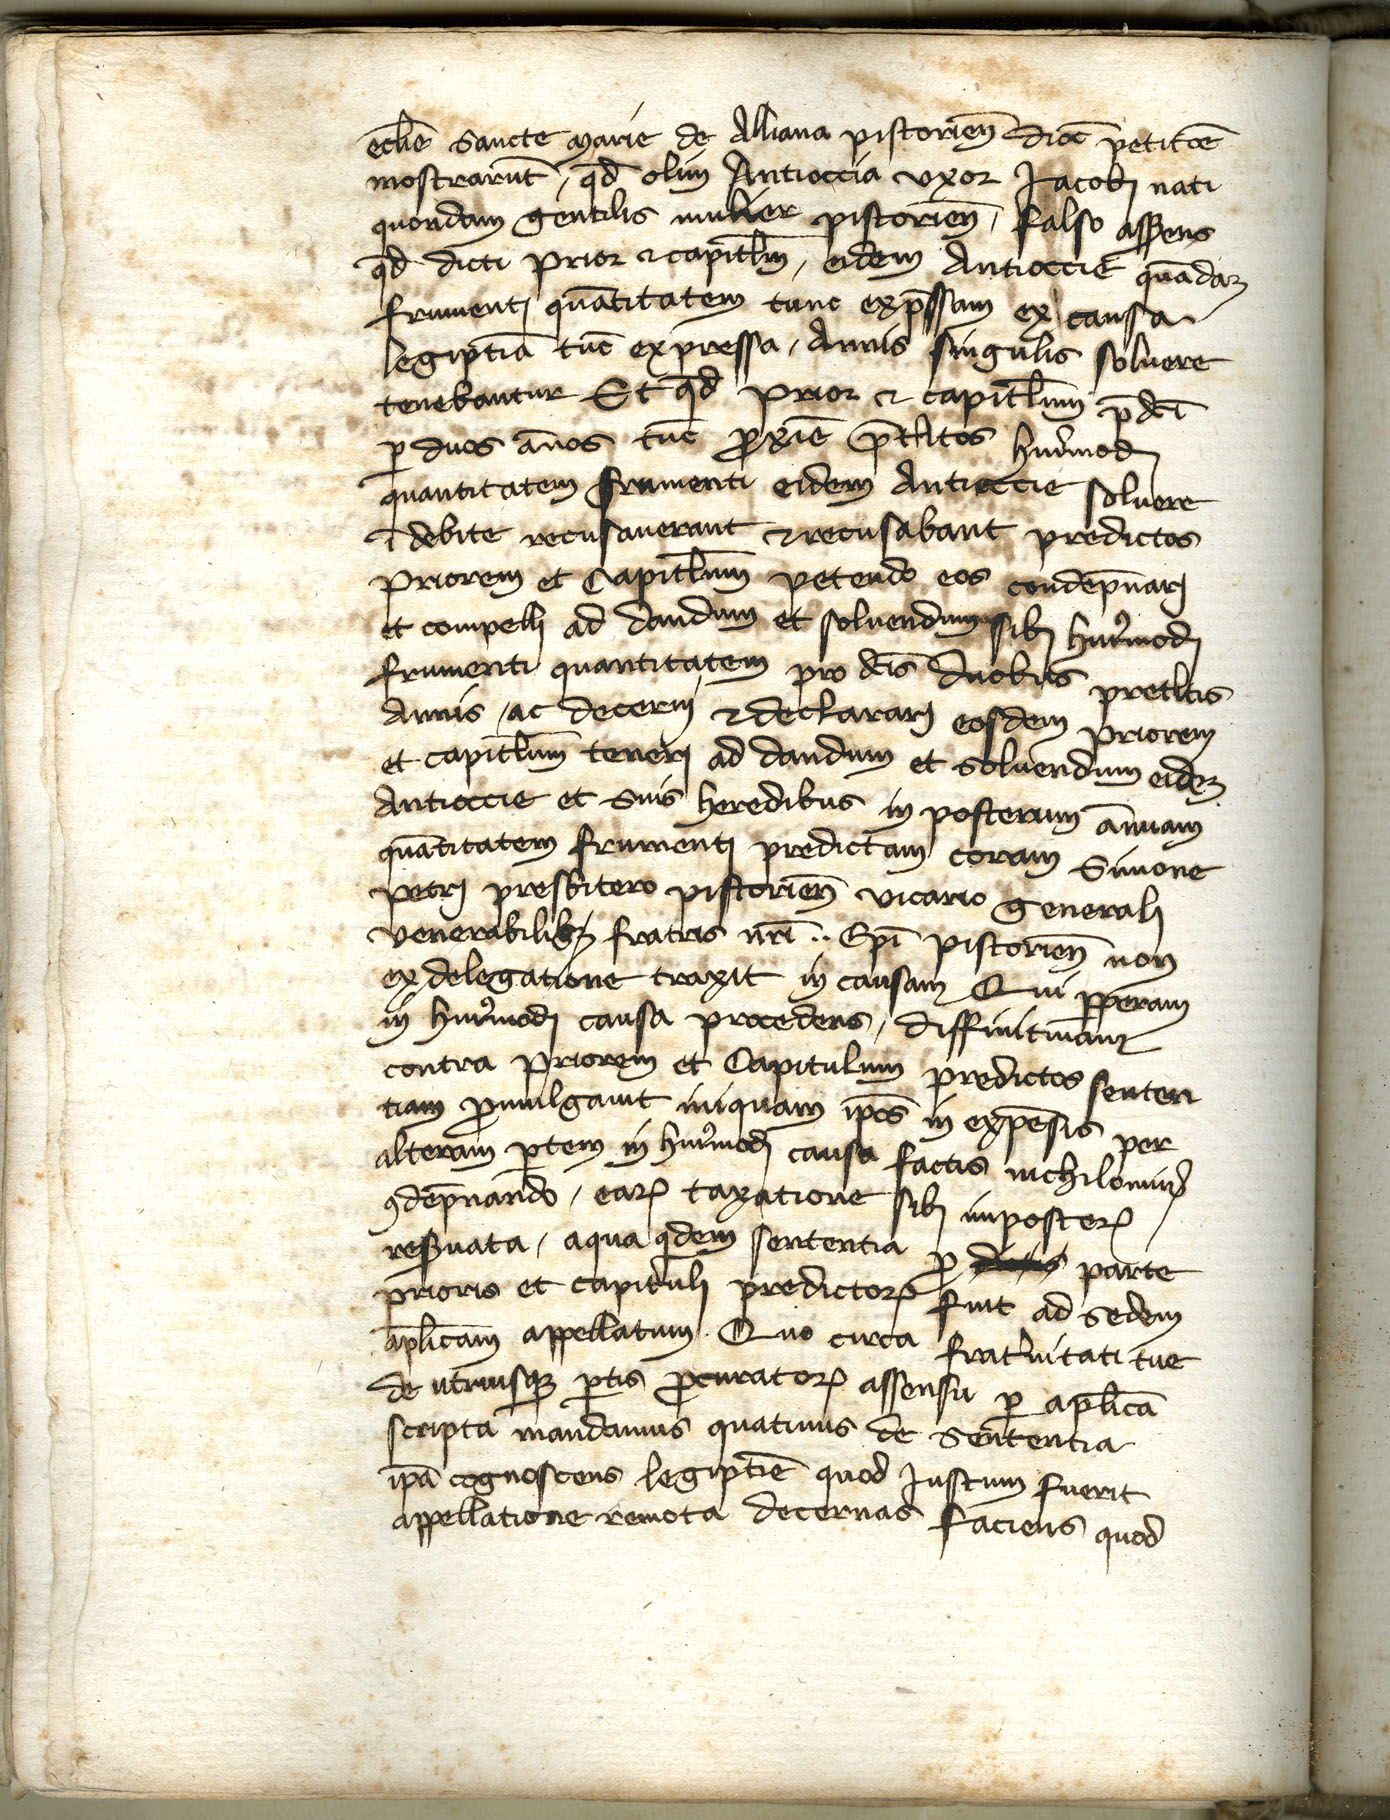 ecclie Sancte Marie de Alliana pistorien dioc petitoe
mostrarunt, qd olim Antioccia uxor Jacobi nati
quondam gentilis mulier pistorien, falso asserens
qd dicti prior et capitlm, eidem Antioccie quadam
frumenti quatitatem tunc expssam ex causa
legiptia tuc expressa, Annis singulis soluere
tenebantur Et qd prior et capitlum pdci
p duos anos tuc pxie pteritos huiusmodi
quantitatem frumenti eidem Antioccie soluere
idebite recusauerant et recusabant predictos
Priorem et Capitlum petendo eos condepnari
et compelli ad dandum et soluendum sibi huiusmodi
frumenti quantitatem pro dcis duobus preteritis
Annis, ac decerni et declarari eosdem priorem
et capitlum teneri ad dandum et soluendum eidem
Antioccie et suis heredibus in posterum anuam
quatitatem frumenti predictam coram Simone
petri presbitero pistorien vicario generali
venerabilibus fratris nri .. Epi pistorien non
ex delegatione traxit in causam Qui pperam
in huiusmodi causa procedens, diffinitiuam
contra Priorem et Capitulum predictos senten
tiam pmulgauit iniquam ipos in expesis per
alteram ptem in huiusmodi causa factis nichilominus
9depnando, earum taxatione sibi imposterum
reseruata, aqua qdem sententia p dictis parte
prioris et capituli predictorum fuit ad sedem
aplicam appellatum. Quo circa fraternitati tue
de utriusque ptis pcuratorum assensu p aplica
scripta mandamus quatinus de sententia
ipa cognoscens legiptie quod Iustum fuerit
appellatione remota decernas faciens quod